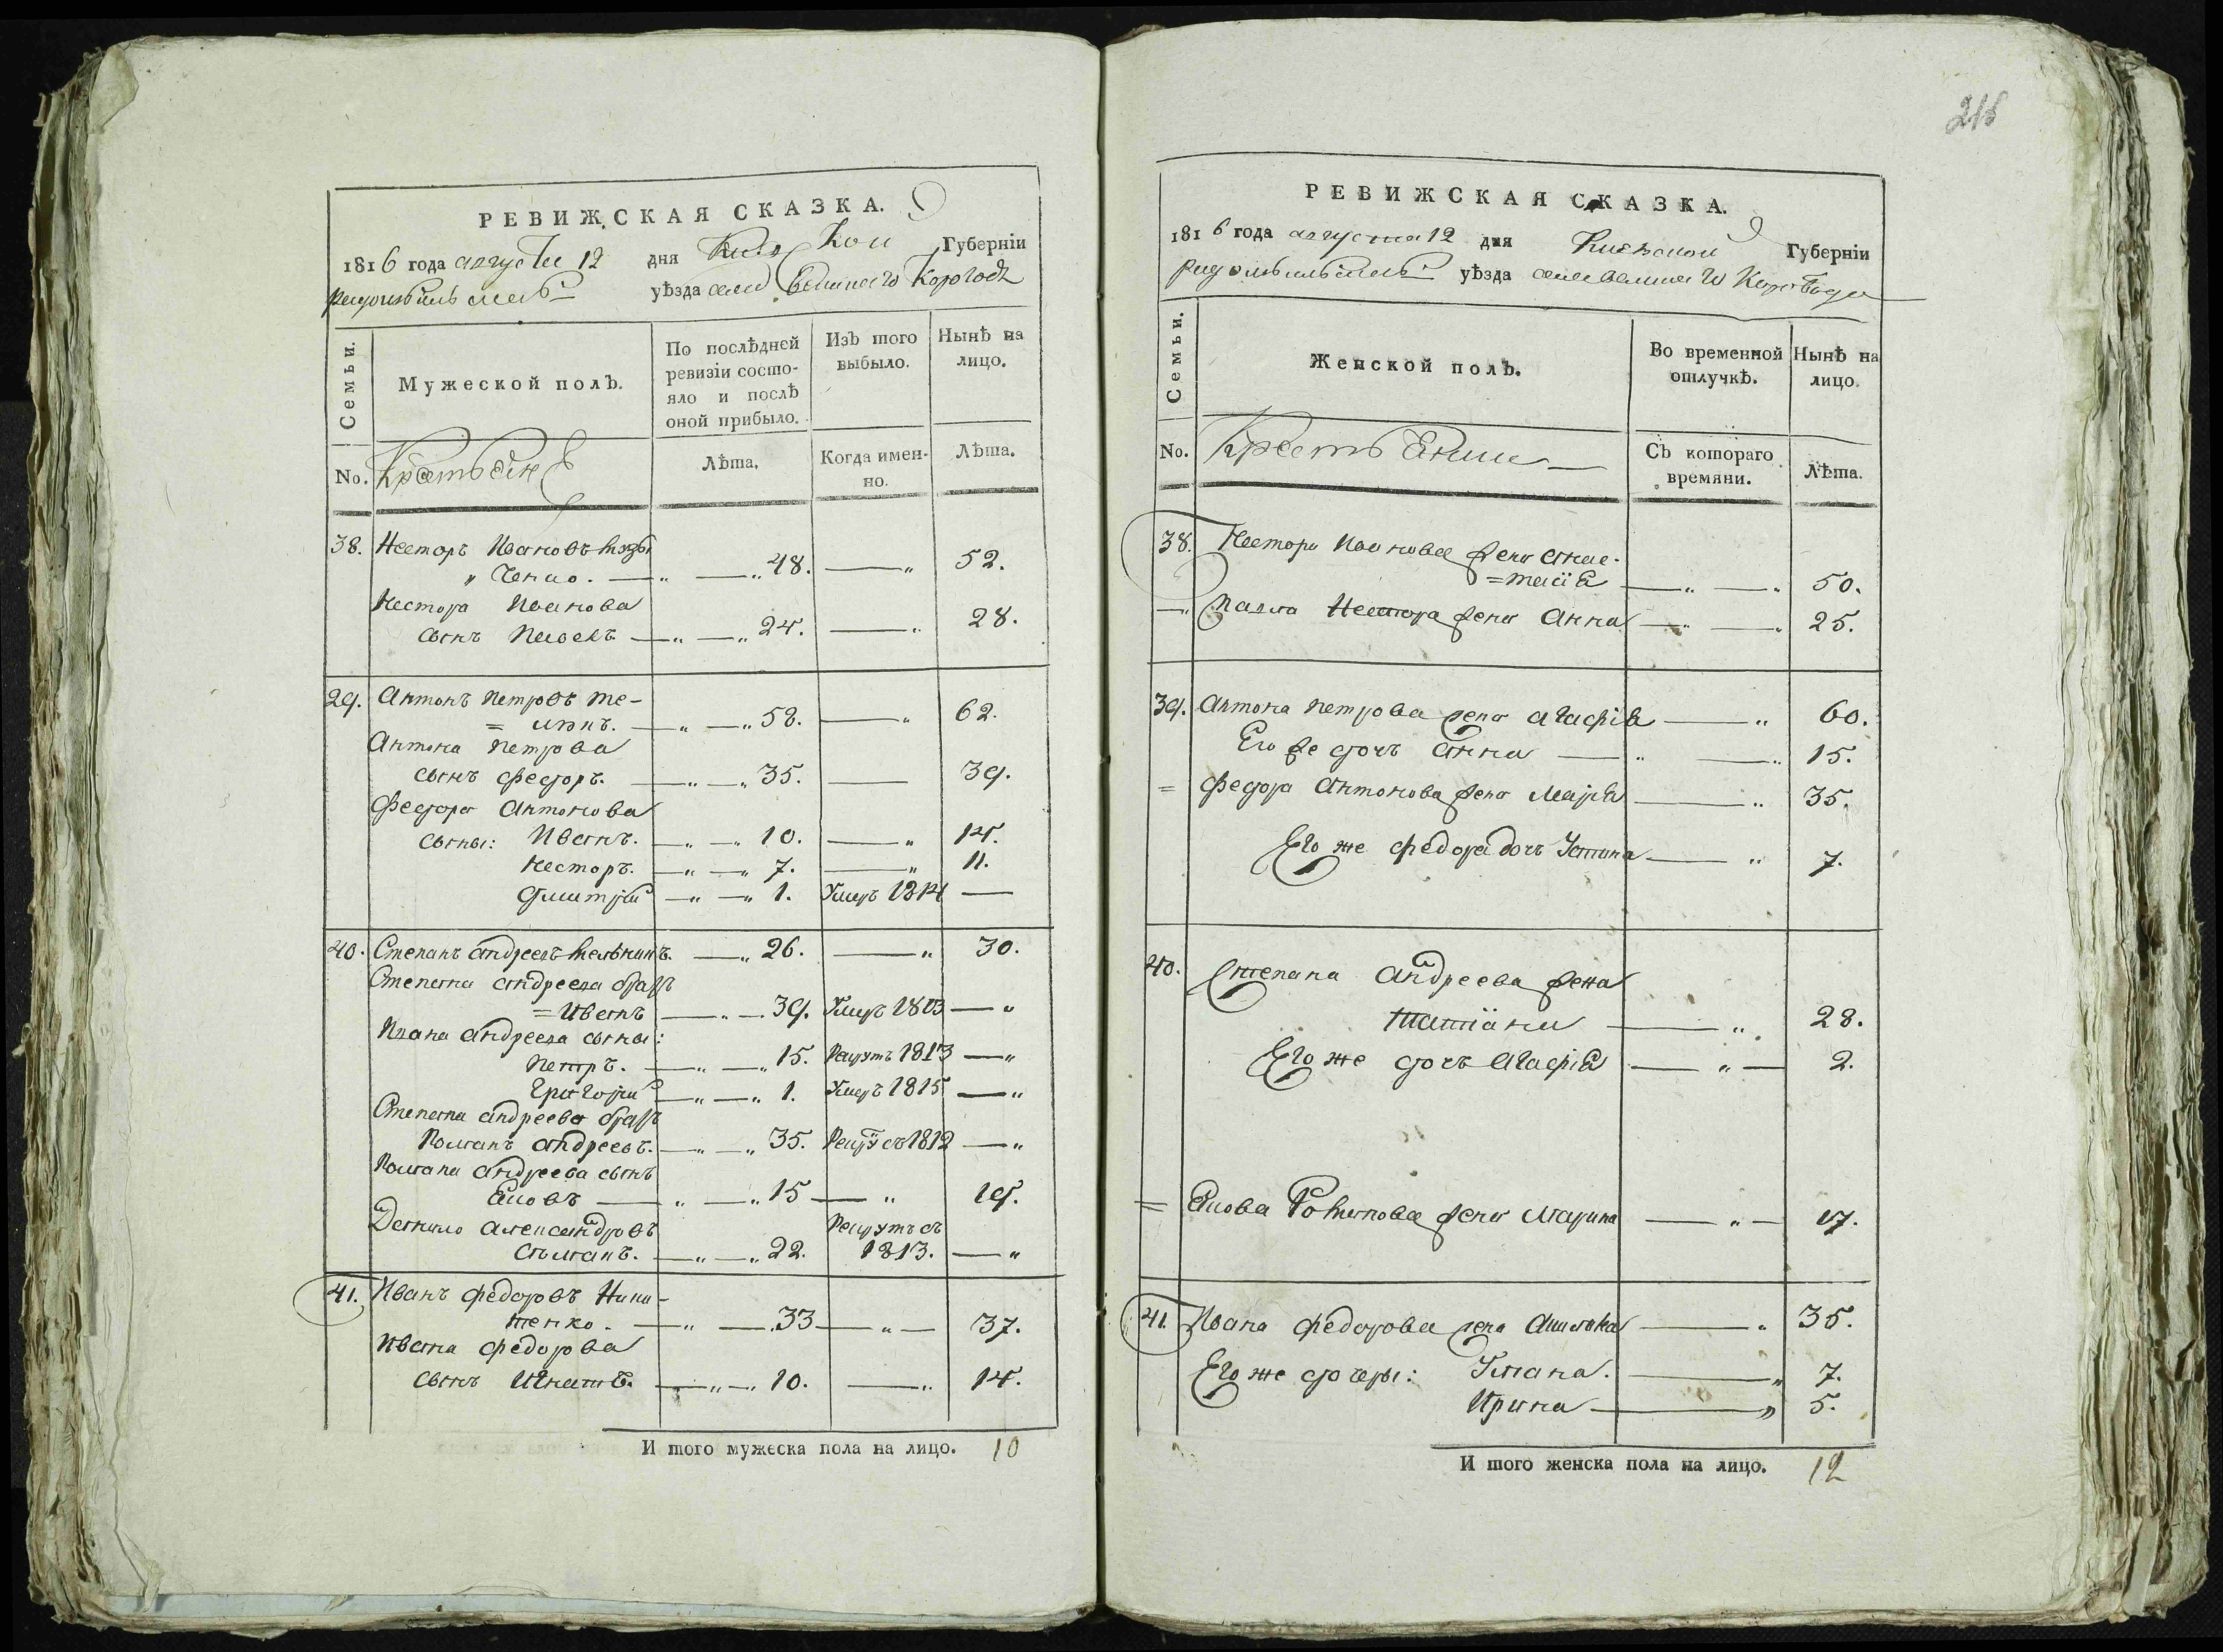 РЕВИЖСКАЯ СКАЗКА.
1816 года августа 12 дня Губерніи
уѣзда села Великаго Корогода
Семьи.
Мужеской полъ.
По послѣдней ревизіи состо-яло и послѣ оной прибыло.
Изъ того выбыло.
Нынѣ на лицо.
No. Крестьяне
Лѣта.
Когда имен-но.
Лѣта.
38. Несторъ Ивановъ
48. 52.
Нестора Иванова
сынъ Павелъ 24. 28.
29. Антонъ Петровъ
58. 62.
Антона Петрова
сынъ Федоръ. 35. 39.
Федора Антонова
сыны: Иванъ. 10. 14.
Несторъ. 7. 11.
Дмитрій 1. Умеръ 1814
40. Степанъ Андреевъ Мельникъ. 26. 30.
Степана Андреева братъ
=Иванъ 39. Умеръ 1813
Ивана Андреева сыны:
Петръ. 15. Рекрутъ 1813
Григорій 1. Умеръ 1815
Степана Андреева братъ
Романъ Андреевъ. 35. Рекрутъ съ 1812
Романа Андреева сынъ
Яковъ 15 19.
Данило Александровъ Рекрутъ съ
22. 1813.
41. Иванъ Федоровъ Ники-
тенко. 33 37.
Ивана Федорова
сынъ Игнатъ. 10. 14.
И того мужеска пола на лицо. 10
218
РЕВИЖСКАЯ СКАЗКА.
1816 года августа 12 дня Киевской Губерніи
Радомысльскаго уѣзда села Великаго Корогода
Семьи.
Женской полъ.
Во временной отлучкѣ.
Нынѣ на лицо.
No. Крестьянки
Съ котораго времяни.
Лѣта.
38. Нестора Иванова жена Анас-
=тасія 50.
Павла Нестора жена Анна 25.
39. Антона Петрова жена Агафія 60.
Его же дочь Анна 15.
= Федора Антонова жена Марья 35.
Его же Федора дочь Устина 7.
40. Степана Андреева жена
Татіана 28.
Его же дочь Агафія 2.
= Якова Романова жена Марина 17.
41. Ивана Федорова жена 35.
Его же дочери: Уляна. 7.
Ирина 5.
И того женска пола на лицо. 12